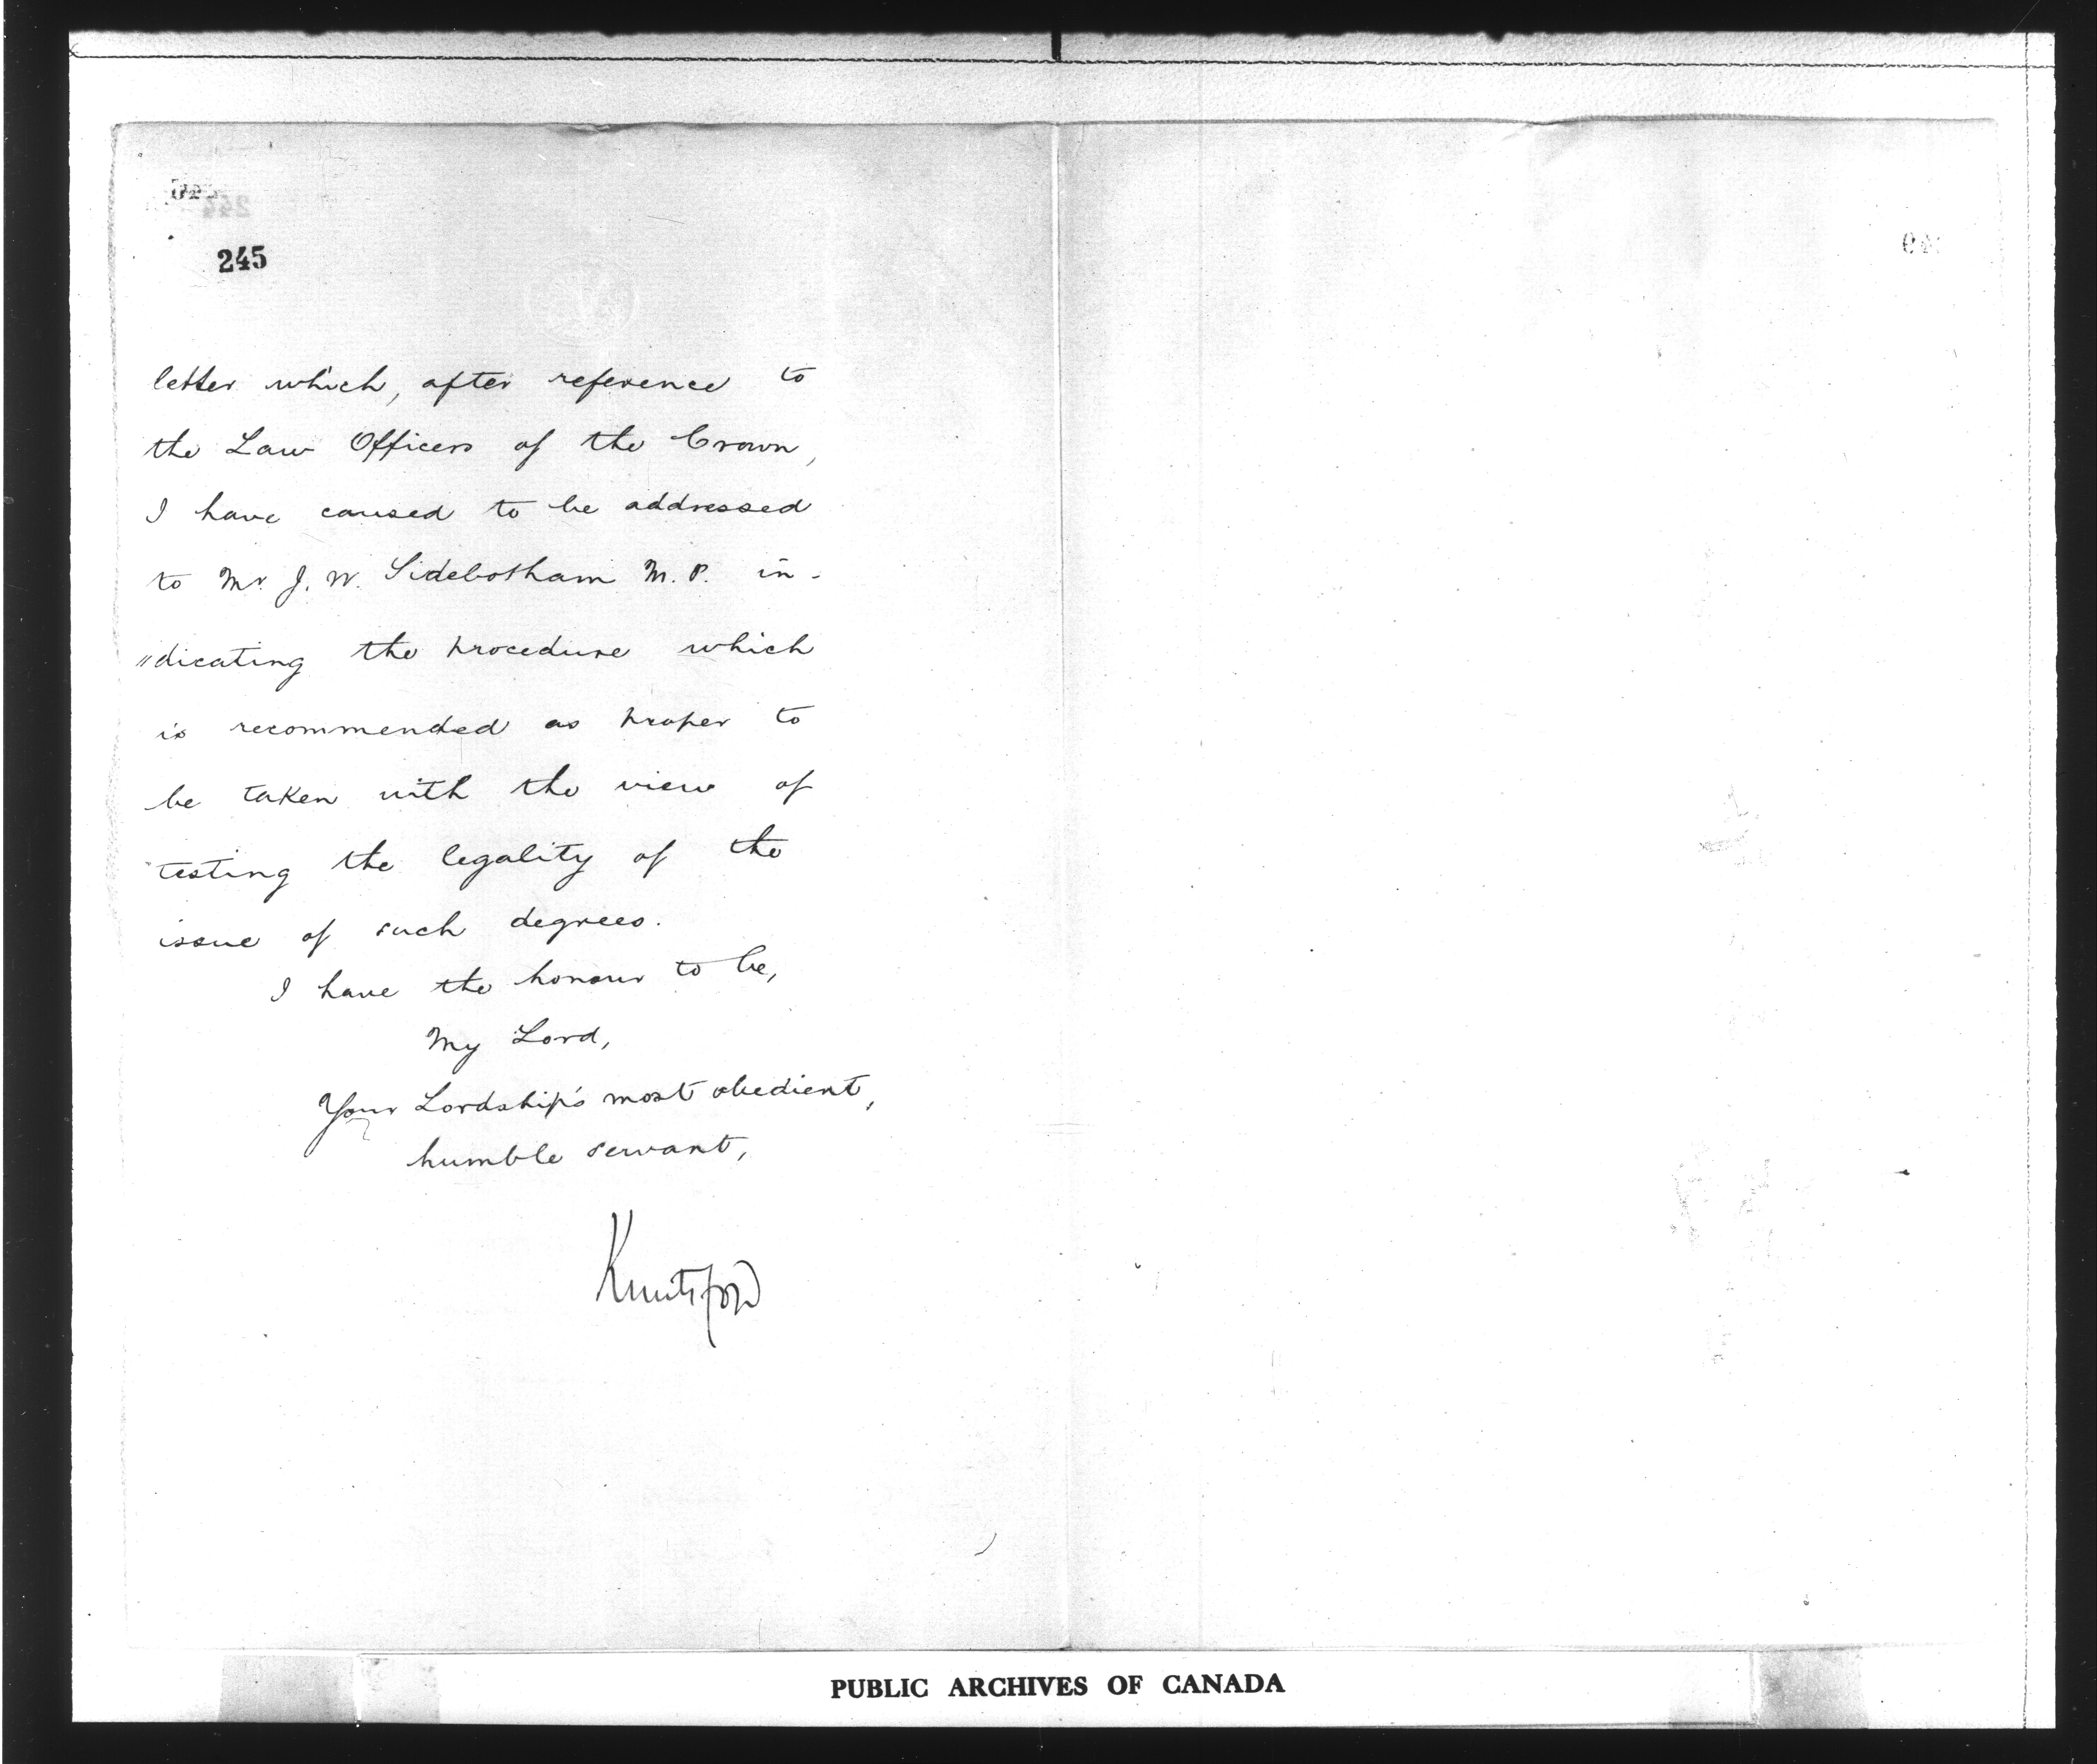 245
letter which, after reference to
the Law Officers of the Crown,
I have caused to be addressed
to Mr. J. W. Sidebotham M. P. in-
"dicating the procedure which
is recommended as proper to
be taken with the view of
testing the legality of the
issue of such degrees.
I have the honour to be,
My Lord,
Your Lordship's most obedient,
humble servant,
Knutsford
PUBLIC ARCHIVES OF CANADA